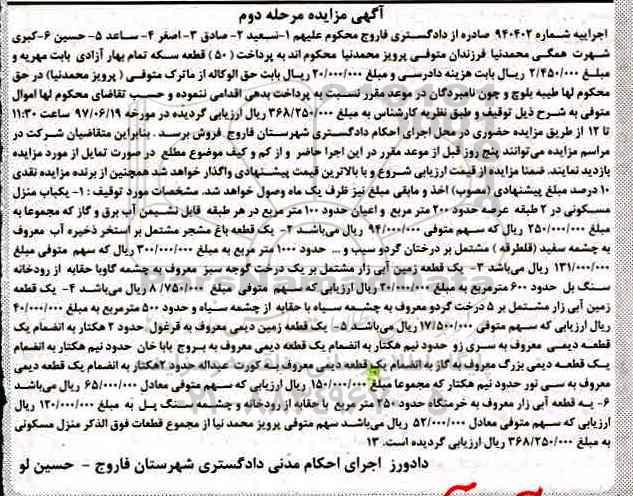 آگهی مزایده مرحله دوم
اجراییه شماره ۹۴۰۴۰۲ صادره از دادگستری فاروج محکوم علیهم ۱-سعید ۲- صادق ۳- اصغر ۴- ساعد ۵- حسین ۶-کبری
شهرت همگی محمدنیا فرزندان متوفی پرویز محمدنیا محکوم اند به پرداخت (۵۰) قطعه سکه تمام بهار آزادی بابت مهریه و
مبلغ ۲/۴۵۰/۰۰۰ ریال بابت هزینه دادرسی و مبلغ ۲۰/۰۰۰/۰۰۰ ریال بابت حق الوکاله از ماترک متوفی ( پرویز محمدنیا) در حق
محکوم لها طیبه بلوچ و چون نامبردگان در موعد مقرر نسبت به پرداخت بدهی اقدامی ننموده و حسب تقاضای محکوم لها اموال
متوفی به شرح ذیل توقیف و طبق نظریه کارشناس به مبلغ ۳۶۸/۲۵۰/۰۰۰ ریال ارزیابی گردیده در مورخه ۹۷/۰۶/۱۹ ساعت ۱۱:۳۰
تا ۱۲ از طریق مزایده حضوری در محل اجرای احکام دادگستری شهرستان فاروج فروش برسد . بنابراین متقاضیان شرکت در
مراسم مزایده می‌توانند پنج روز قبل از موعد مقرر در این اجرا حاضر و از کم و کیف موضوع مطلع در صورت تمایل از مورد مزایده
بازدید نمایند. ضمنا مزایده از قیمت ارزیابی شروع و با بالاترین قیمت پیشنهادی واگذار خواهد شد همچنین از برنده مزایده نقدی
۱۰ درصد مبلغ پیشنهادی (مصوب) اخذ و مابقی مبلغ نیز ظرف یک ماه وصول خواهد شد. مشخصات مورد توقیف : ۱- یکباب منزل
مسکونی در ۲ طبقه عرصه حدود ۲۰۰ متر مربع و اعیان حدود ۱۰۰ متر مربع در هر طبقه قابل نشیمن آب برق و گاز که مجموعا به
مبلغ ۲۵۰/۰۰۰/۰۰۰ ریال که سهم متوفی ۹۴/۰۰۰/۰۰۰ ریال می‌باشد ۲- یک قطعه باغ مشجر مشتمل بر استخر ذخیره آب معروف
به چشمه سفید (قلطرقه) مشتمل بر درختان گردو سیب و ... حدود ۱۰۰۰ متر مربع به مبلغ ۳۰۰/۰۰۰/۰۰۰ ریال که سهم متوفی مبلغ
۱۳۱/۰۰۰/۰۰۰ ریال می‌باشد ۳- یک قطعه زمین آبی زار مشتمل بر یک درخت گوجه سبز معروف به چشمه گاوبا حقابه از رودخانه
سنگ پل حدود ۶۰۰ مترمربع به مبلغ ۲۰/۰۰۰/۰۰۰ ریال ارزیابی که سهم متوفی مبلغ ۸/۷۵۰/۰۰۰ ریال می‌باشد ۴- یک قطعه
زمین آبی زار مشتمل بر ۵ درخت گردو معروف به چشمه سیاه با حقابه از چشمه سیاه و حدود ۵۰۰ مترمربع به مبلغ ۴۰/۰۰۰/۰۰۰
ریال ارزیابی که سهم متوفی ۱۷/۵۰۰/۰۰۰ ریال می‌باشد ۵- یک قطعه زمین دیمی معروف به قرغول حدود ۲ هکتار به انضمام یک
قطعه دیمی معروف به سری زو حدود نیم هکتار به انضمام یک قطعه دیمی معروف به بروج بابا خان حدود نیم هکتار به انضمام
یک قطعه دیمی بزرگ معروف به گاز به انضمام یک قطعه دیمی معروف به کورت عبداله حدود ۲هکتار به انضمام یک قطعه دیمی
معروف به سی تور حدود نیم هکتار که مجموعا مبلغ ۱۵۰/۰۰۰/۰۰۰ ریال ارزیابی که سهم متوفی معادل ۶۵/۰۰۰/۰۰۰ ریال می‌باشد
۶- یه قطعه آبی زار معروف به خرمنگاه حدود ۲۵۰ متر مربع با حقابه از رودخانه و چشمه سنگ پل به مبلغ ۱۲۰/۰۰۰/۰۰۰ ریال
ارزیابی که سهم متوفی معادل ۵۲/۰۰۰/۰۰۰ ریال می‌باشد سهم متوفی پرویز محمد نیا از مجموع قطعات فوق الذکر منزل مسکونی
به مبلغ ۳۶۸/۲۵۰/۰۰۰ ریال ارزیابی گردیده است. ۱۳
دادورز اجرای احکام مدنی دادگستری شهرستان فاروج - حسین لو